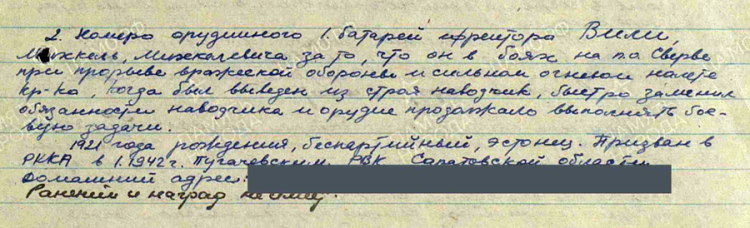 2. Номера орудийного 1. батареи ефрейтора Вили,
Миккель, Михкелевича за то, что он в боях на п.о Сверве
при прорыве вражеской обороне и сильном огневом налете
пр-ка, когда был выведен из строя наводчик, быстро заменил
обязанности наводчика и орудие продолжало выполнять бое-
вую задачи.
1921 года рождения, беспартийный, эстонец. Призван в
РККА в 1.1942 г. Пугачевским РВК Саратовской области.
Домашний адрес:
Ранений и наград не имеет.